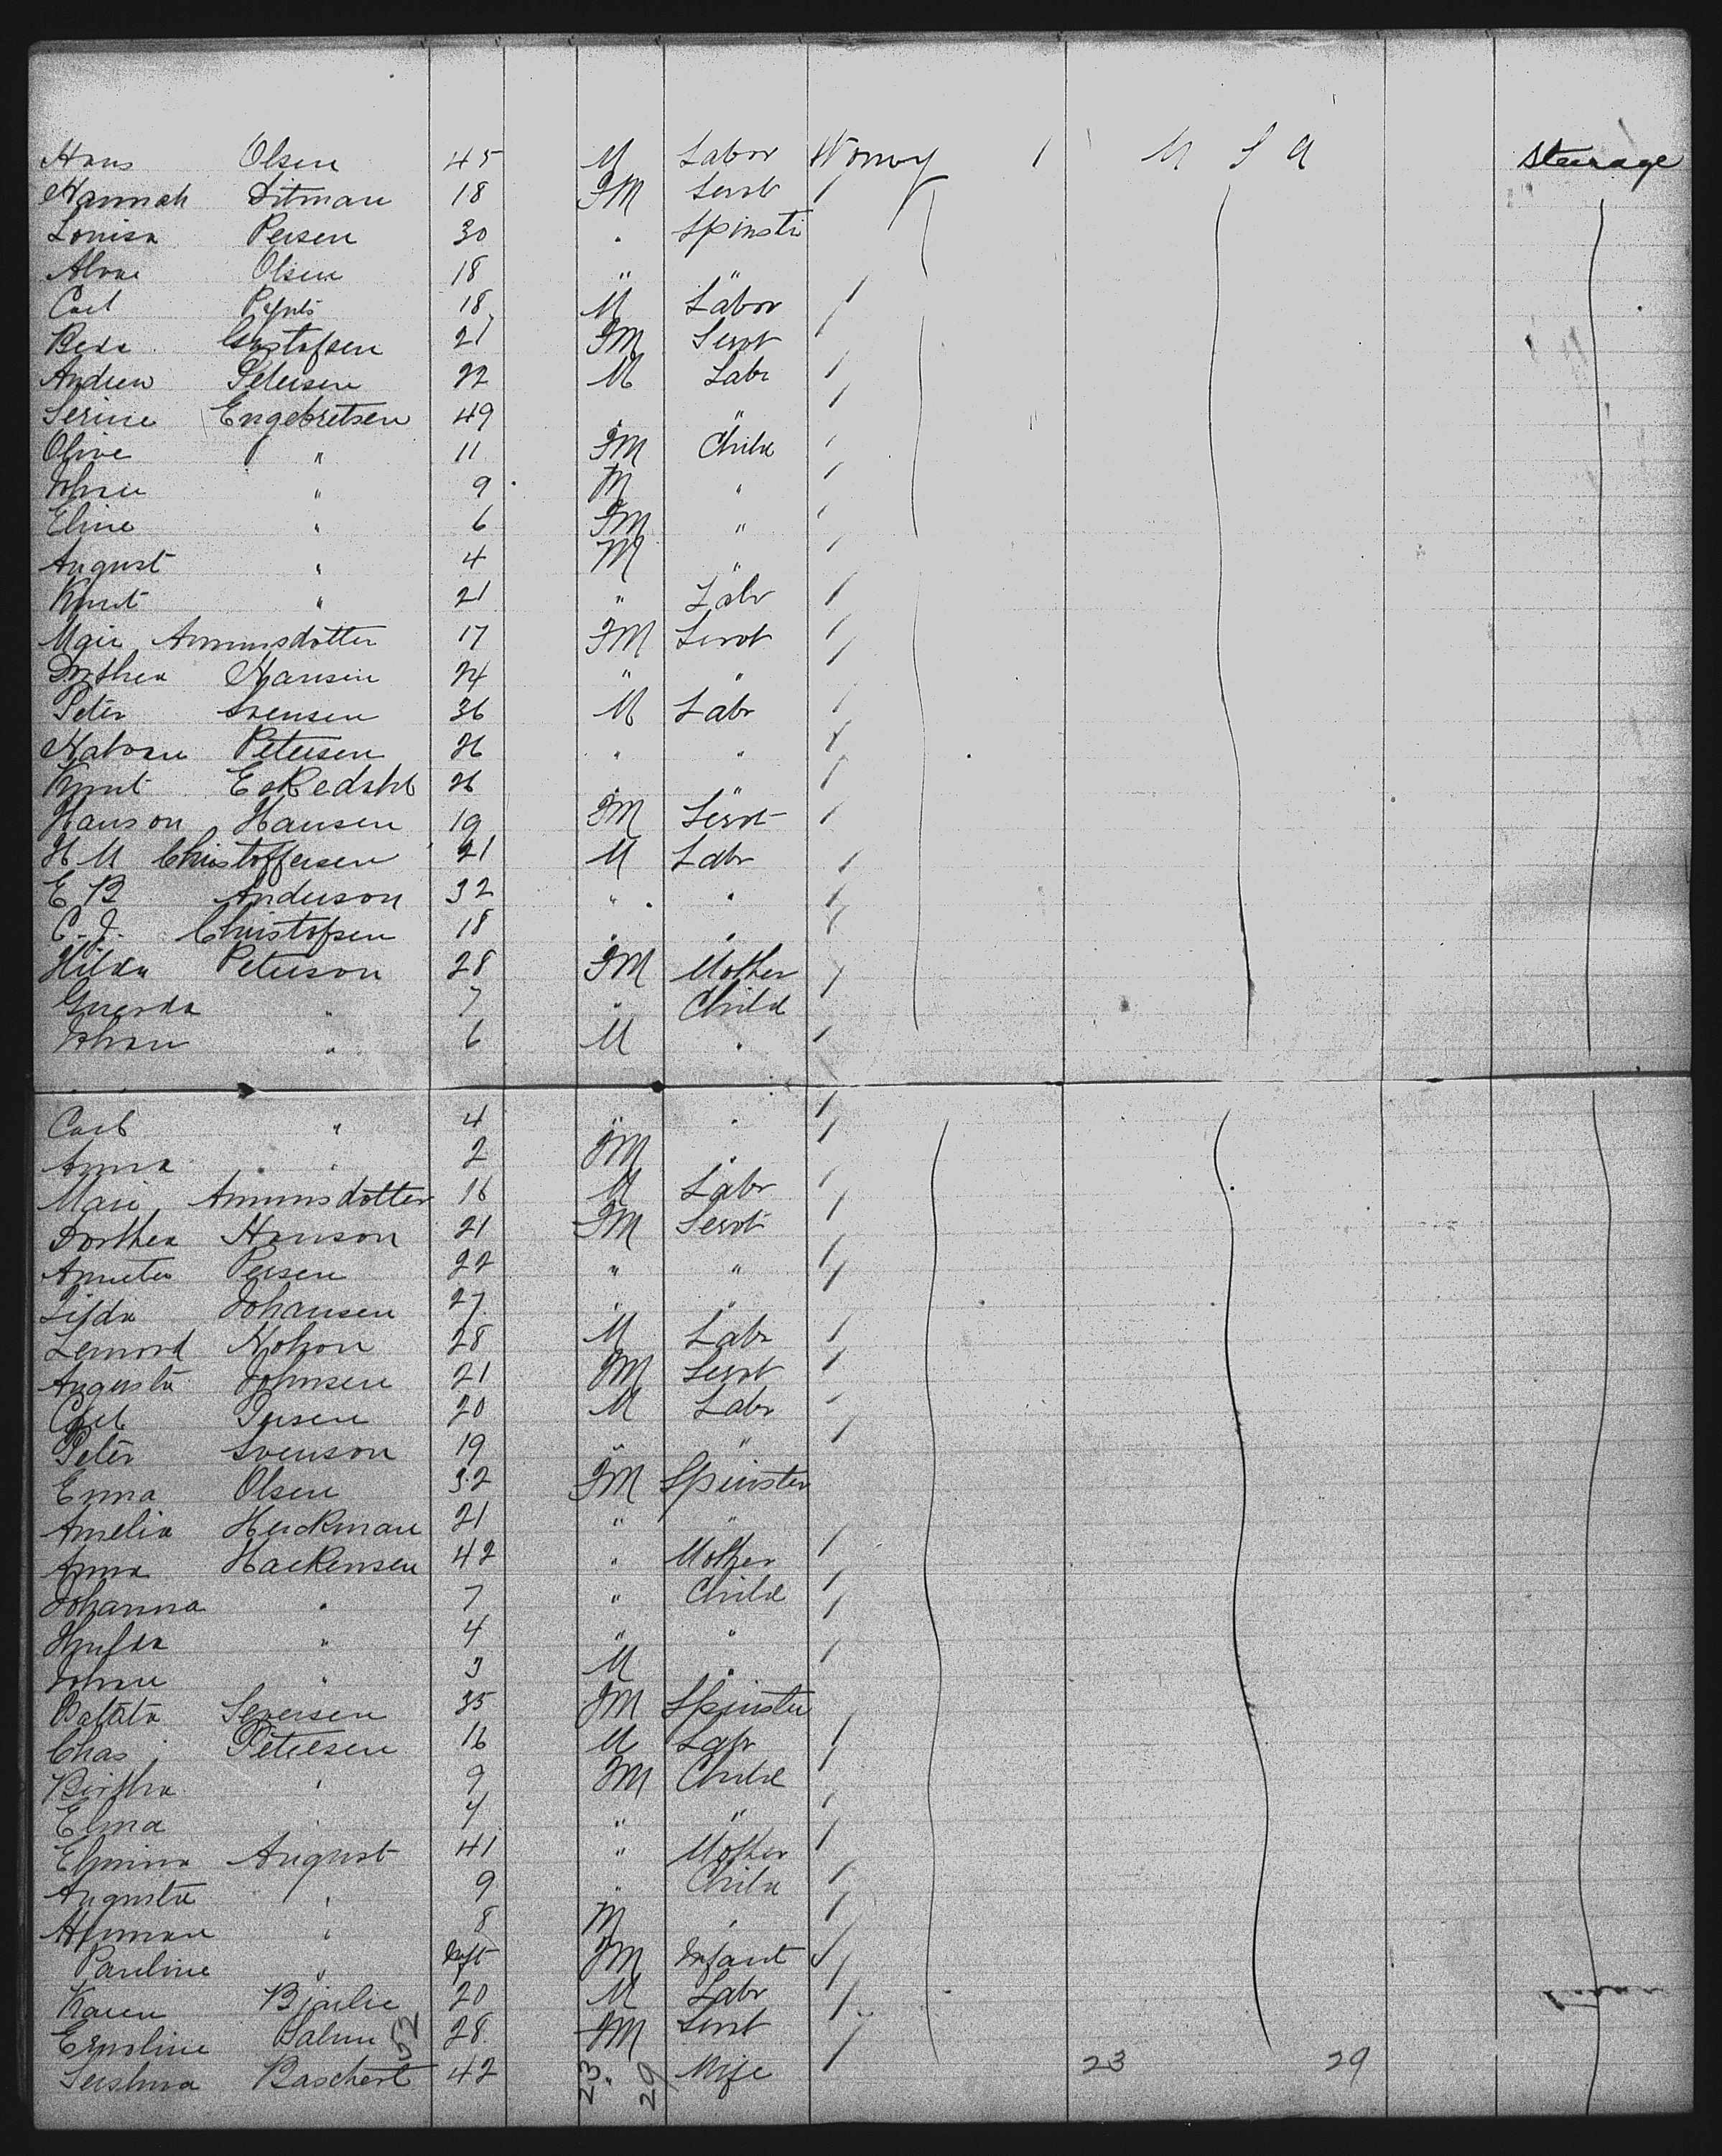 Hans Olsen 45 M Labor Norwy 1 U S A Steerage
Hannah Ditman 18 FM Servt
Louisa Persen 30 " Spinstr
Olsen 18 " "
Carl 18 M Labor
Beda Gustafsen 21 FM Servt
Andrew Petersen 22 M Labr
Serine Engebretsen 49 " "
Olive " 11 FM Child
Johan " 9 M "
Eline " 6 FM "
August " 4 M "
Knut " 21 " Labr
Marie Amunsdotter 17 FM Servt
Dorthea Hansen 24 " "
Peter Svensen 36 M Labr
Halvan Petersen 26 " "
Knut Eskedahl 26 " "
Hanson Hansen 19 FM Servt
H M Christoffersen 21 M Labr
E B Anderson 32 " "
C. J. Christofsen 18 " "
Hilda Peterson 28 FM Mother
Guerda " 7 " Child
Johan " 6 M "
Carl " 4 " "
Anna " 2 FM "
Marie Amunsdotter 16 M Labr
Dorthea Hanson 21 FM Servt
Annete Persen 22 " "
Johansen 27 " "
28 M Labr
Augusta Johnsen 21 FM Servt
Carl Persen 20 M Labr
Peter Svenson 19 " "
Emma Olsen 32 FM Spinster
Amelia Heckman 21 " "
Anna Hackensen 42 " Mother
Johanna " 7 " Child
Hulda " 4 " "
Johan " 3 M "
Seversen 35 FM Spinster
Chas Petersen 16 M Labr
Birtha " 9 FM Child
Elma " 4 " "
August 41 " Mother
Augusta " 9 " Child
Herman " 8 M "
Pauline " Inft FM Infant
Karen 20 M Labr
Salum 28 FM Servt
52
Baschert 42 " Wife
23 29 23 29